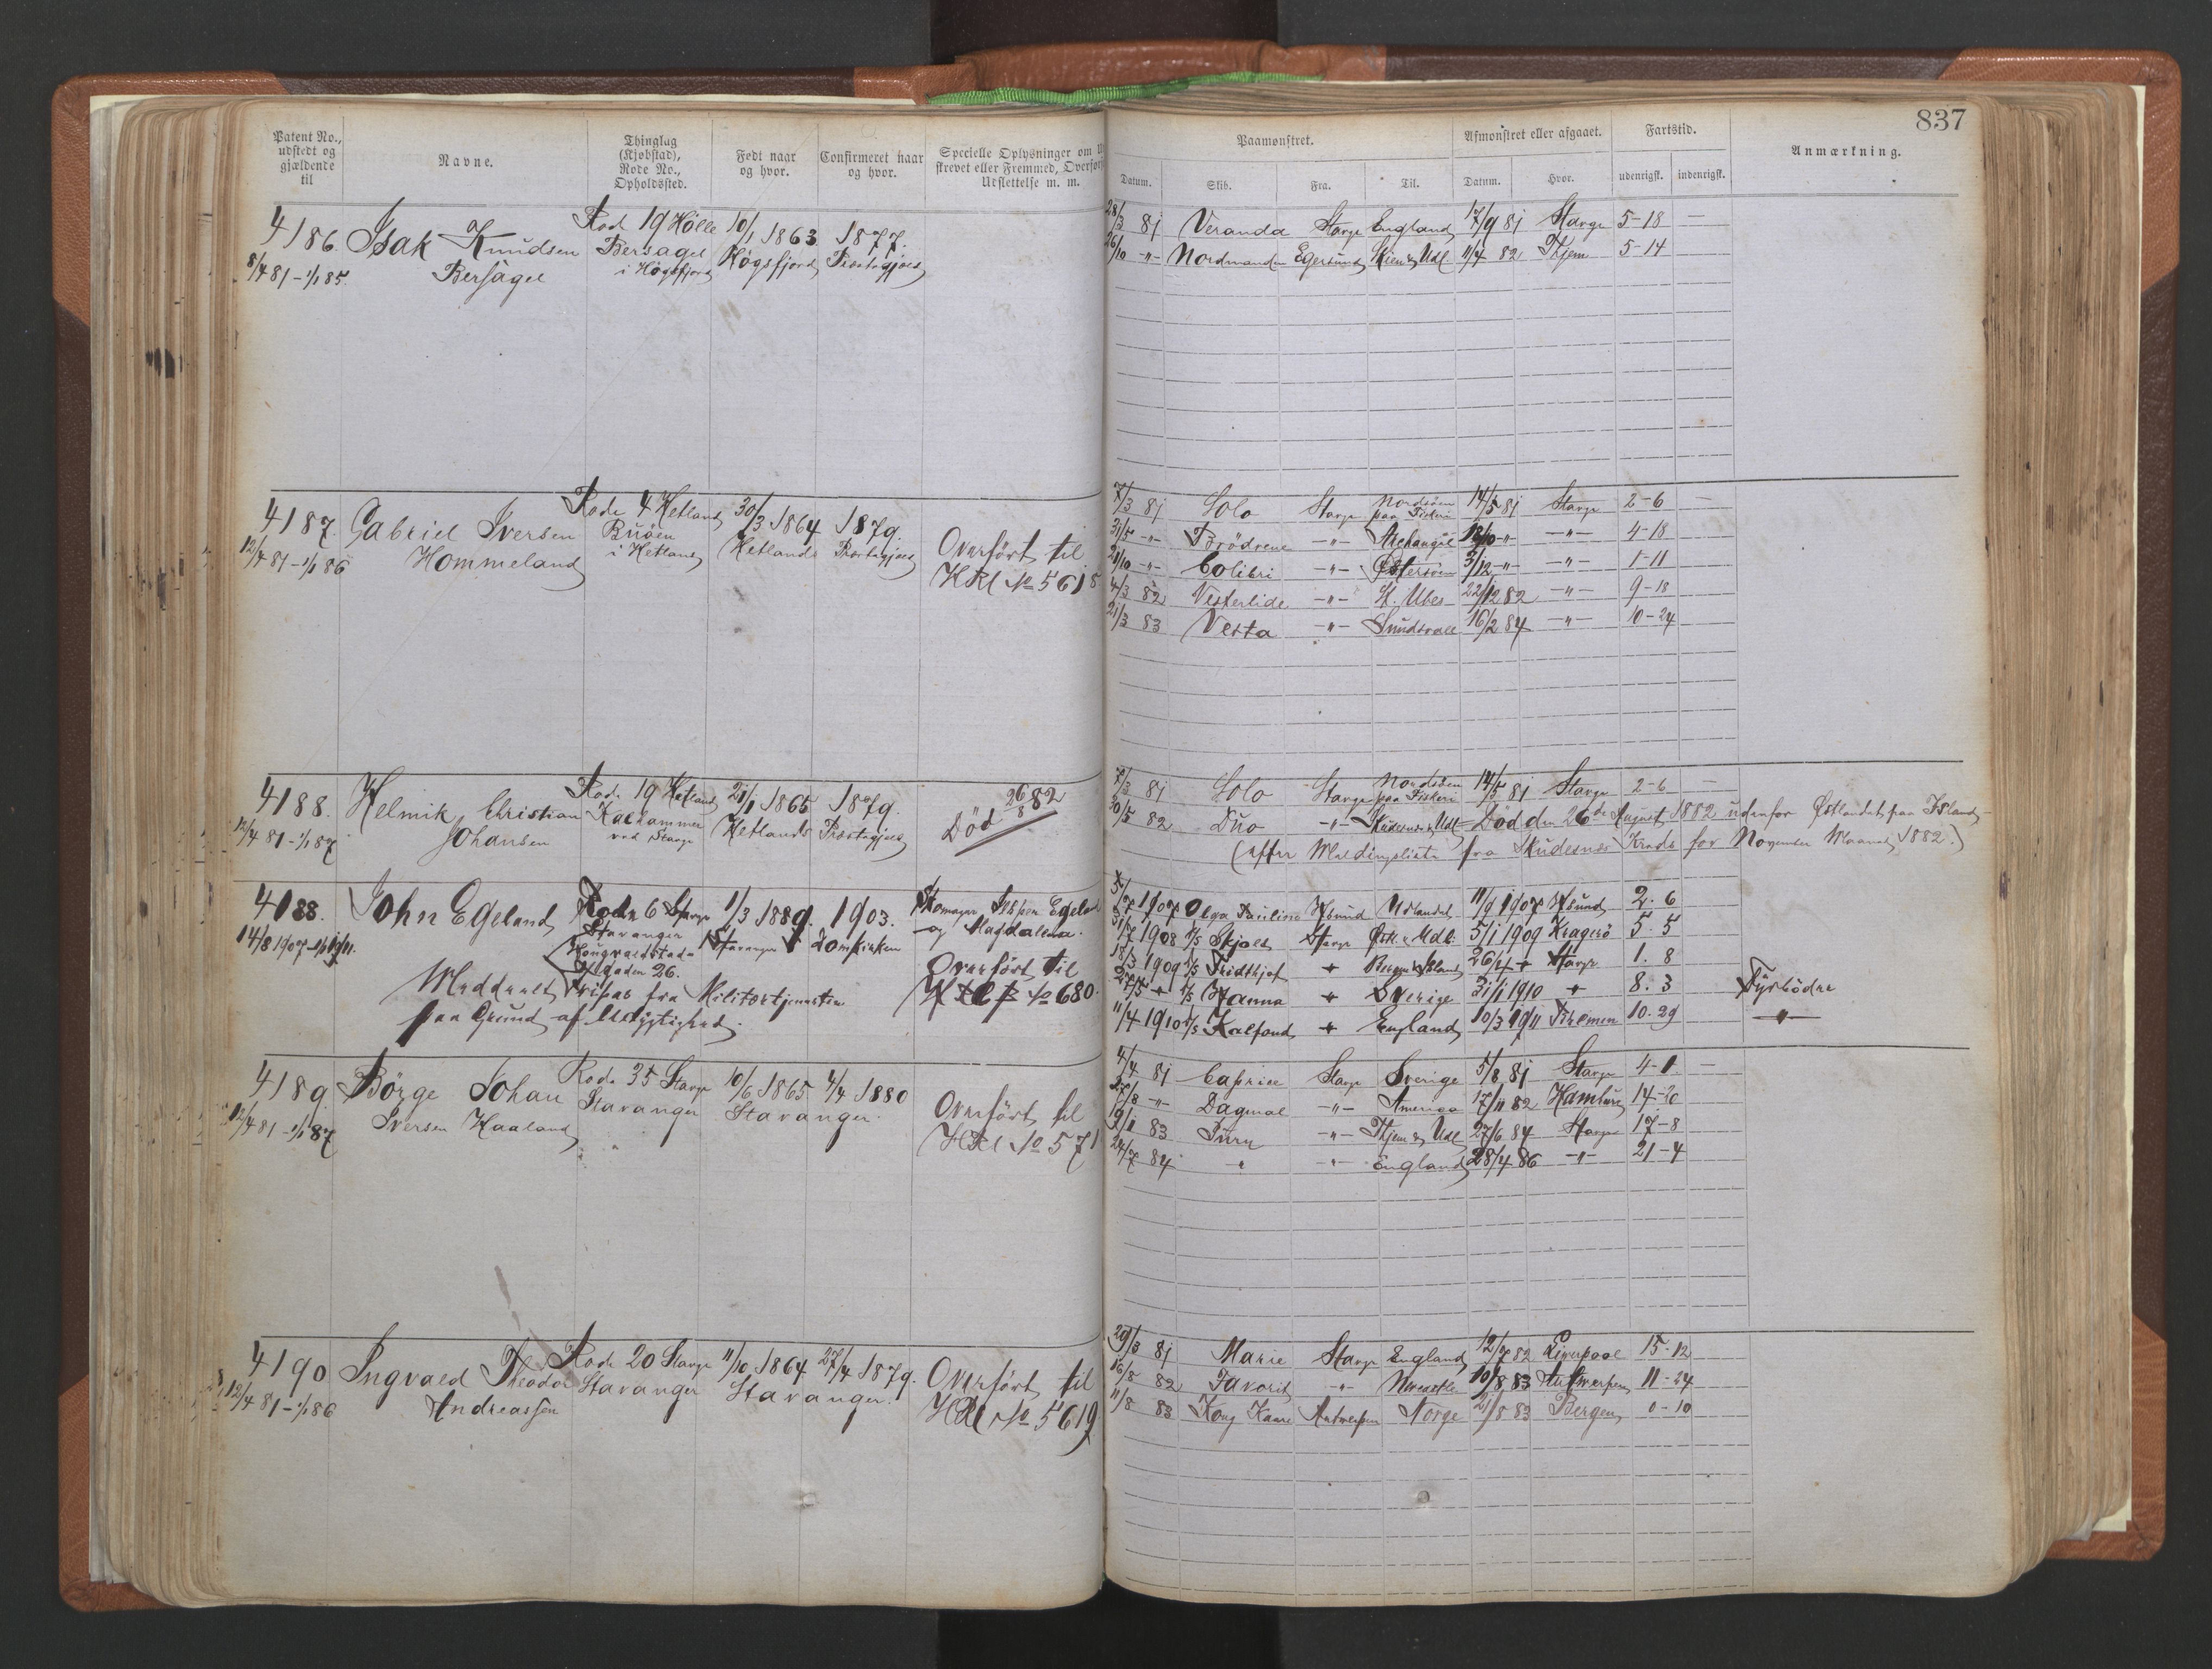 837
Patent No., udstedt og gjældende til
Navne.
Thinglag (Kjøbstad), Rode No., Opholdssted.
Født naar og hvor.
Confirmeret naar og hvor.
Specielle Oplysninger om
skrevet eller Fremmed, Overfør
Udslettelse m. m.
Paamønstret.
Afmønstret eller afgaaet.
Fartstid.
Anmærkning.
Datum. Skib. Fra. Til. Datum. Hvor. udenrigsk. indenrigsk.
4186 Isak Knudsen Rode 19 Hølle 10/1 1863 1877.
8/4 81 - 1/1 85. Bersagel Bersagel i Høgsfjord Høgsfjord Præstegjæld
28/3 81 Veranda Stavgr England 17/9 81 Stavgr 5-18 —
26/10 -"- Nordmanden Egersund Skien & Udl. 11/4 82 Hjem 5-14
4187. Gabriel Iversen Rode 4 Hetland 30/3 1864 1879.
12/4 81 - 1/1 86 Hommeland Buøen i Hetland Hetlands Præstegjæld
Overført til
HRl No 5618
7/3 81 Solo Stavgr Nordsøen paa Fiskeri 14/5 81 Stavgr 2-6 —
31/5 -"- Brødrene -"- Archangel 18/10 -"- -"- 4-18
21/10 -"- Colibri -"- Østersøen 3/12 -"- -"- 1-11
4/3 82 Vesterlide -"- St. Ubes 22/12 82 -"- 9-18
21/3 83 Vesta -"- Sundsvall 16/2 84 -"- 10-24
4188. Helmik Christian Rode 19 Hetland 21/1 1865 1879.
12/4 81 - 1/1 87 Johansen Kalhammer ved Stavgr Hetlands Præstegjæld
Død 26/8 82
7/3 81 Solo Stavgr Nordsøen paa Fiskeri 14/5 81 Stavgr 2-6 —
30/5 82 Duo -"- Skudesnæs & Udl = Død den 26de August 1882 udenfor Østlandet paa Island
(efter Meldingsliste fra Skudesnæs Kreds for November Maaned 1882.)
4088. John Egeland Rode 6 Stavgr 1/3 1889. 1903.
14/8 1907 - 1/1 1911. Stavanger Stavanger Domkirken
Kongsgaardstad-
gaden 26.
Skomager Jesper Egeland
og Magdalena.
Meddeelt Fripas fra Militærtjenesten
paa Grund af Udygtighed.
Overført til
No 680.
5/7 1907 Olga Pauline Hsund Udlandet 11/9 1907 Hsund 2. 6
31/7 1908 D/S Skjold Stavgr Østl. & Udl. 5/1 1909 Kragerö 5. 5
18/3 1909 D/S Fridthjof + Bergen & Island 26/4 + Stavgr 1. 8
27/5 + D/S Hanna + Sverige 31/1 1910 + 8. 3 Fyrbödre
11/4 1910 D/S Kalfond + England 10/3 1911 Bremen 10. 29 —"—
4189. Börge Johan Rode 35 Stavgr 10/6 1865 4/4 1880
12/4 81 - 1/1 87 Iversen Haaland Stavanger Stavanger.
Overført til
HRl No 571
4/4 81 Caprice Stavgr Sverige 5/8 81 Stavgr 4-1 —
27/8 -"- Dagmal -"- America 17/11 82 Hamburg 14-20
19/1 83 Furu -"- Hjem & Udl 27/6 84 Stavgr 17-8
24/7 84 " -"- England 28/4 86 -"- 21-4
4190 Ingvald Theodor Rode 20 Stavgr 11/10 1864 27/4 1879.
12/4 81 - 1/1 86 Andreassen Stavanger Stavanger.
Overført til
HRl No 5619
29/3 81 Marie Stavgr England 12/7 82 Liverpool 15-12
16/8 82 Favorit -"- Newcastle 10/8 83 Antwerpen 11-24
11/8 83 Kong Kaare Antwerpen Norge 21/8 83 Bergen 0-10